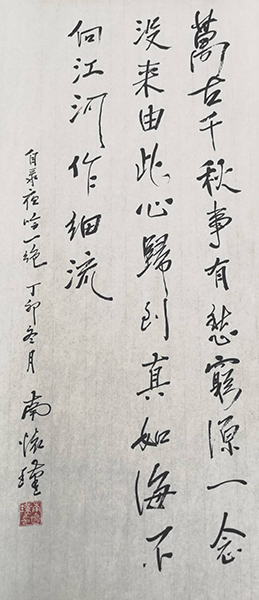 萬古千秋事有愁窮源一念
没来由此心歸到真如海不
向江河作細流
自录夜吟一絶 丁卯冬月 南懷瑾